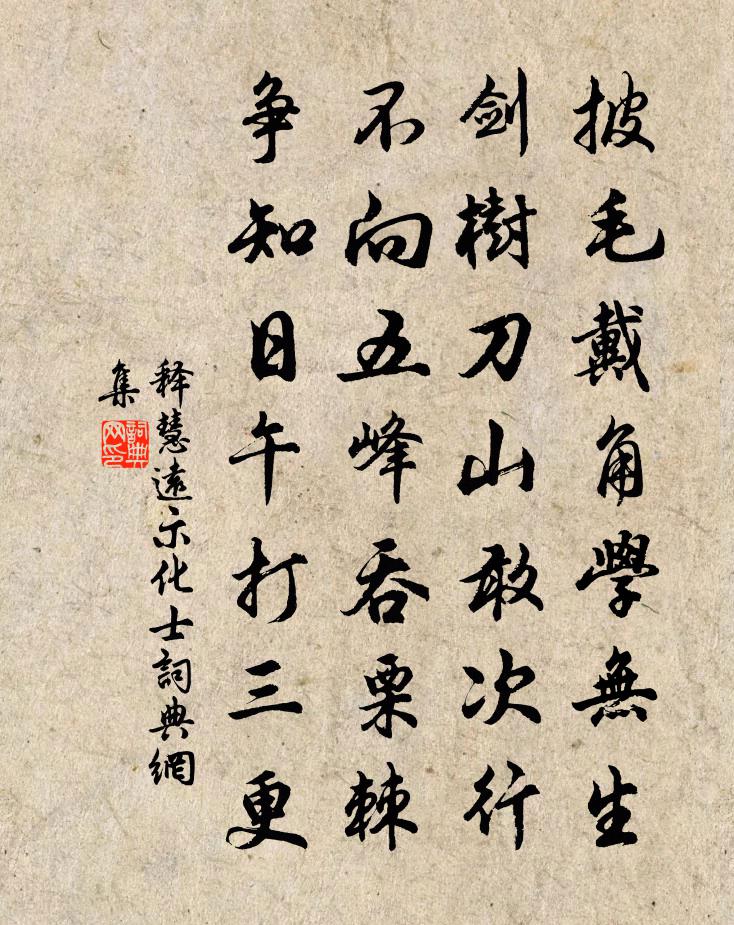 披毛戴角學無生
剑樹刀山敢次行
不向五峰吞栗棘
争知日午打三更
释慧遠示化士詞典網
集
詞典网印